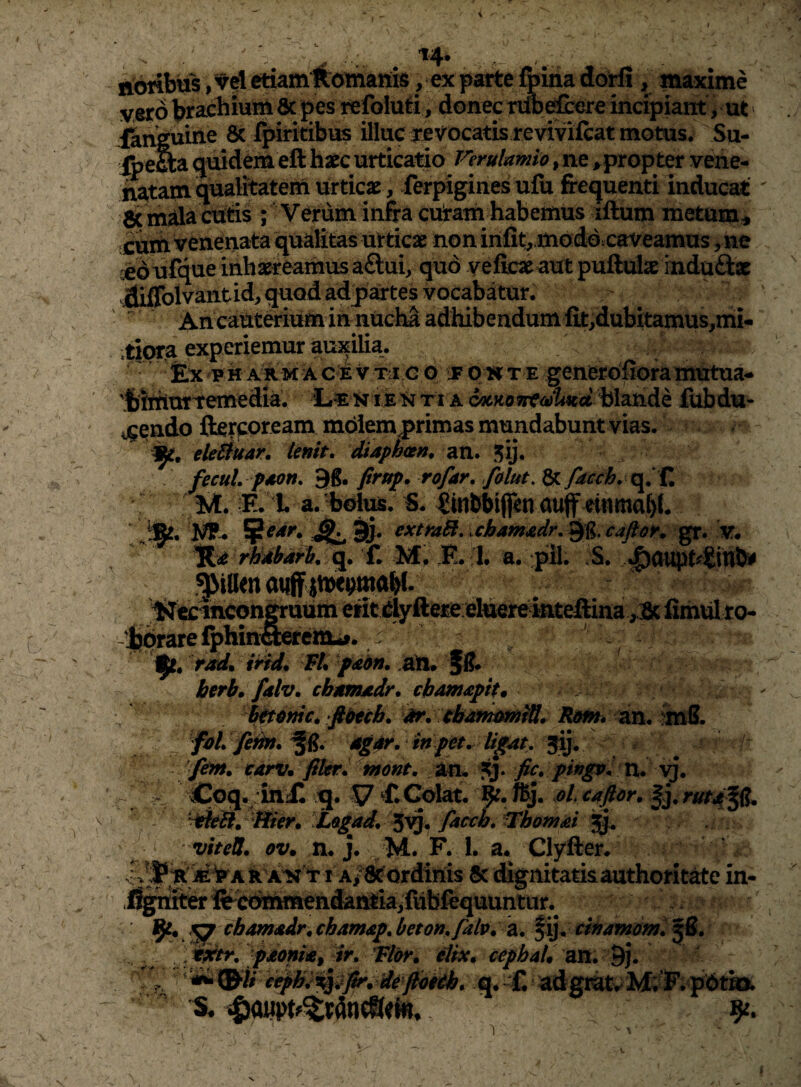 14.
noribus, vel etiam Romanis, ex parte ſpina dorſi, maxime
vero brachium & pes reſoluti, donec rubeſcere incipiant, ut
ſanguine & ſpiritibus illuc revocatis reviviſcat motus. Su-
ſpecta quidem eſt hæc urticatio Verulamio, ne, propter vene-
natam qualitatem urticæ, ſerpigines uſu frequenti inducat
& mala cutis; Verùm infra curam habemus iſtum metum,
cum venenata qualitas urticæ non inſit, modò caveamus, ne
eò uſque inhæreamus actui, quò veſicæ aut puſtulæ inductæ
diſſolvant id, quod ad partes vocabatur.
An cauterium in nuchâ adhibendum ſit, dubitamus, mi-
tiora experiemur auxilia.
Ex PHARMACEVTICO FONTE generoſiora mutua-
bimur remedia. LENIENTIA blandè ſubdu-
cendo ſtercoream molem primas mundabunt vias.
℞. electuar. lenit. diaphœn. an. ʒij.
fecul. pæon. ℈ß. ſirup. roſar. ſolut. & ſacch. q. ſ.
M. F. l. a. bolus. S. Lindbiſſen auff einmahl.
℞. MP. ℈j. extract. chamædr. ℈ß. caſtor. gr. v.
Ræ rhabarb. q. ſ. M. F. l. a. pil. S. Haupt-Lind-
Pillen auff zweymahl.
Nec incongruum erit clyſtere eluere inteſtina, & ſimul ro-
borare ſphincterem.
℞. rad. irid. Fl. pæon. an. ℥ß.
herb. ſalv. chamædr. chamæpit.
betonic. ſtœch. ar. chamomill. Rom. an. mß.
fol. ſenn. ℥ß. agar. in pet. ligat. ʒij.
ſem. carv. ſiler. mont. an. ʒj. fic. pingv. n. vj.
Coq. in ſ. q. ▽ ſ. Colat. ℞. ℔j. ol. caſtor. ℥j. rutæ ℥ß.
elect. Hier. Logad. ʒvj. ſacch. Thomæi ℥j.
vitell. ov. n. j. M. F. l. a. Clyſter.
PRÆPARANTIA, & ordinis & dignitatis authoritate in-
ſigniter ſe commendantia, ſubſequuntur.
℞. chamædr. chamæp. beton. ſalv. a. ℥ij. cinamom. ℥ß.
extr. pæoniæ, ir. Flor. elix. cephal. an. ℈j.
ceph. ʒj. ſir. de ſtœch. q. ſ. ad grat. M. F. potio.
S. Haupt-Träncklein. ℞.